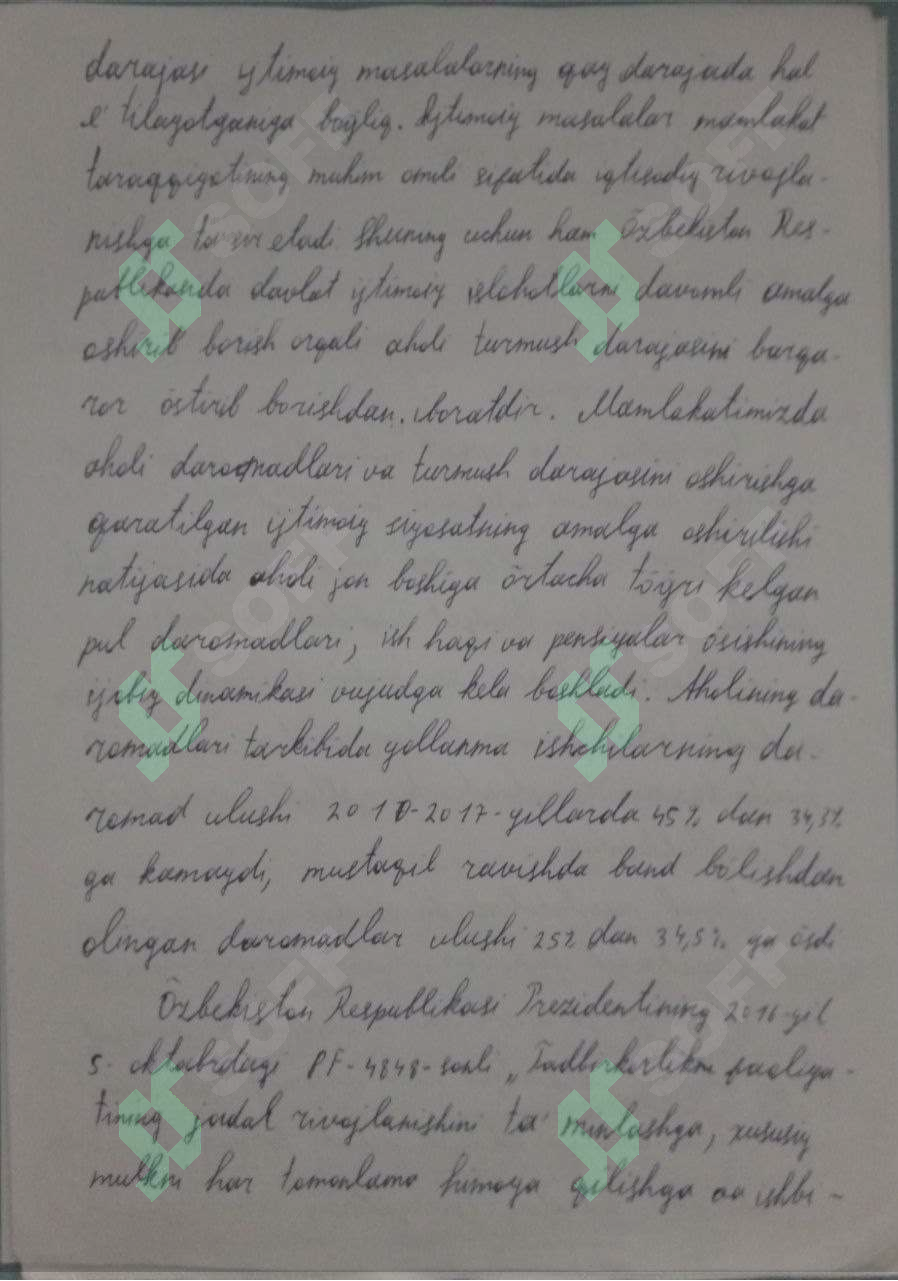 darajasi ijtimoiy masalalarning qay darajada hal
etilayotganiga bog'liq. Ijtimoiy masalalar mamlakat
taraqqiyotining muhim omili sifatida iqtisodiy rivojla-
nishga ta'sir etadi. Shuning uchun ham Õzbekiston Res-
publikasida davlat ijtimoiy islohotlarni davomli amalga
oshirib borish orqali aholi turmush darajasini barqa-
ror õstirib borishdan iboratdir. Mamlakatimizda
aholi daromadlari va turmush darajasini oshirishga
qaratilgan ijtimoiy siyosatning amalga oshirilishi
natijasida aholi jon boshiga õrtacha tõg'ri kelgan
pul daromadlari, ish haqi va pensiyalar õsishining
ijobiy dinamikasi vujudga kela boshladi. Aholining da-
romadlari tarkibida yollanma ishchilarning da-
romad ulushi 2010-2017-yillarda 45% dan 34,3%
ga kamaydi, mustaqil ravishda band bõlishdan
olingan daromadlar ulushi 25% dan 34,5% ga õsdi
Õzbekiston Respublikasi Prezidentining 2016-yil
5-oktabrdagi PF-4848-sonli „Tadbirkorlikni faoliya-
tining jadal rivojlanishini ta'minlashga, xususiy
mulkni har tomonlama himoya qilishga va ishbi-
SOFF
SOFF
SOFF
SOFF
SOFF
SOFF